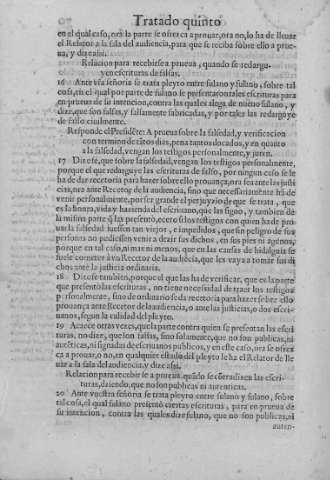 Tratado quinto
en el qual caso, ora la parte se ofrezca a prouar, ora no, lo ha de lleuar
el Relator a la sala del audiencia, para que se reciba sobre ello a prue-
ua, y dize assi.
Relacion para recebirse a prueua, quando se redarguy-
en escrituras de falsas.
16 Ante vr̃a señoria se trata pleyto entre fulano y fulano, sobre tal
cosa, en el qual por parte de fulano se presentaron tales escrituras para
en prueua de su intencion, contra las quales alega de nueuo fulano, y
dize, que son falsas, y falsamente fabricadas, y por tales las redarguye
de falso ciuilmente.
Responde el Presidẽte: A prueua sobre la falsedad, y verificacion
con termino de tãtos dias, pena tantos ducados, y en quanto
a la falsedad, vengan los testigos personalmente, y juren.
17 Dizese, que sobre la falsedad, vengan los testigos personalmente,
porque el que redarguye las escrituras de falso, por ningun caso se le
ha de dar recetoria para hazer sobre ello prouança, ora sea ante las justi
cias, ora ante Recetor de la audiencia, sino que necessariamente hã de
venir personalmente, por ser grande el perjuyzio de que se trata, que
es la honra, vida y hazienda del escriuano, que las signo, y tambien de
la misma parte q̃ las presentò, ecepto si los testigos con quien ha de pro
uar la falsedad fuessen tan viejos, e impedidos, que sin peligro de sus
personas no pudiessen venir a dezir sus dichos, en sus pies ni agenos,
porque en tal caso, ni mas ni menos, que en las causas de hidalguia se
suele cometer à vn Recetor de la audiẽcia, que les vaya a tomar sus di
chos ante la justicia ordinaria.
18 Dizese tambien, porque el que las ha de verificar, que es la parte
que presentò las escrituras, no tiene necessidad de traer los testigos
personalmente, sino de ordinario se da recetoria para hazer sobre ello
prouança ante Recetor de la audiencia, o ante las justicias, o dos escri-
uanos, segun la calidad del pleyto.
19 Acaece otras vezes, que la parte contra quien se presentan las escri
turas, no dize, que son falsas, sino solamente, que no son publicas, ni
autẽticas, ni signadas de escriuanos publicos, y en este caso, ora se ofrez
ca a prouar, o no, en qualquier estado del pleyto le ha el Relator de lle
uar a la sala del audiencia, y dize assi.
Relacion para recebirse a prueua, quãdo se cõtradizen las escri-
turas, diziendo, que no son publicas ni autenticas.
20 Ante vuestra señoria se trata pleyto entre fulano y fulano, sobre
tal cosa, el qual fulano presentò ciertas escrituras, para en prueua de
su intencion, contra las quales dize fulano, que no son publicas, ni
auten-